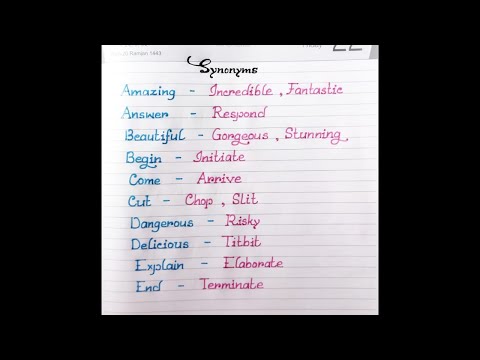 Ramjan 1443
Synonyms
Amazing - Incredible , Fantastic
Answer - Respond
Beautiful - Gorgeous , Stunning
Begin - Initiate
Come - Arrive
Cut - Chop , Slit
Dangerous - Risky
Delicious - Titbit
Explain - Elaborate
End - Terminate